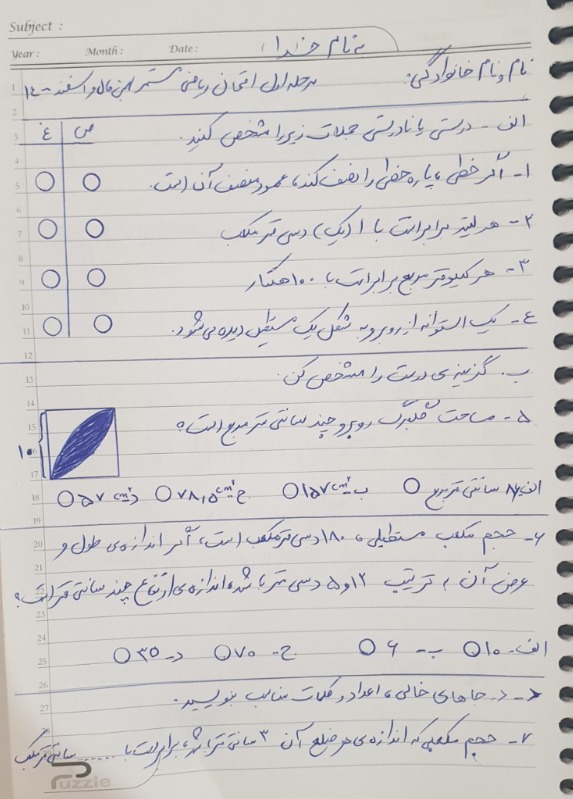 Subject :
به نام خدا
Year : Month : Date :
نام و نام خانوادگی:
مرحله اول امتحان ریاضی ششم اسفند ۱۴۰۰
الف - درستی یا نادرستی جملات زیر را مشخص کنید.
ص غ
۱- اگر خطی، پاره خطی را نصف کند، عمود منصف آن است.
۲- هر لیتر برابر است با ۱ (یک) دسی متر مکعب
۳- هر کیلومتر مربع برابر است با ۱۰۰ هکتار
۴- یک استوانه از روبرو به شکل یک مستطیل دیده می شود.
ب. گزینه ی درست را مشخص کن.
۵- مساحت گلبرگ روبرو چند سانتی متر مربع است؟
۱۰
الف سانتی متر مربع ب- ۱۵۷ cm² ج- ۷۸,۵ cm² د- ۵۷ cm²
۶- حجم مکعب مستطیلی، ۱۸۰ دسی متر مکعب است، اگر اندازه ی طول و
عرض آن به ترتیب ۱۲ و ۵ دسی متر باشد، اندازه ی ارتفاع چند سانتی متر است؟
الف- ۱۰ ب- ۶ ج- ۷۰ د- ۳۵
ج- در جاهای خالی، اعداد و کلمات مناسب بنویسید.
۷- حجم مکعبی که اندازه ی هر ضلع آن ۳ سانتی متر باشد، برابر است با ........ سانتی متر مکعب
Puzzle